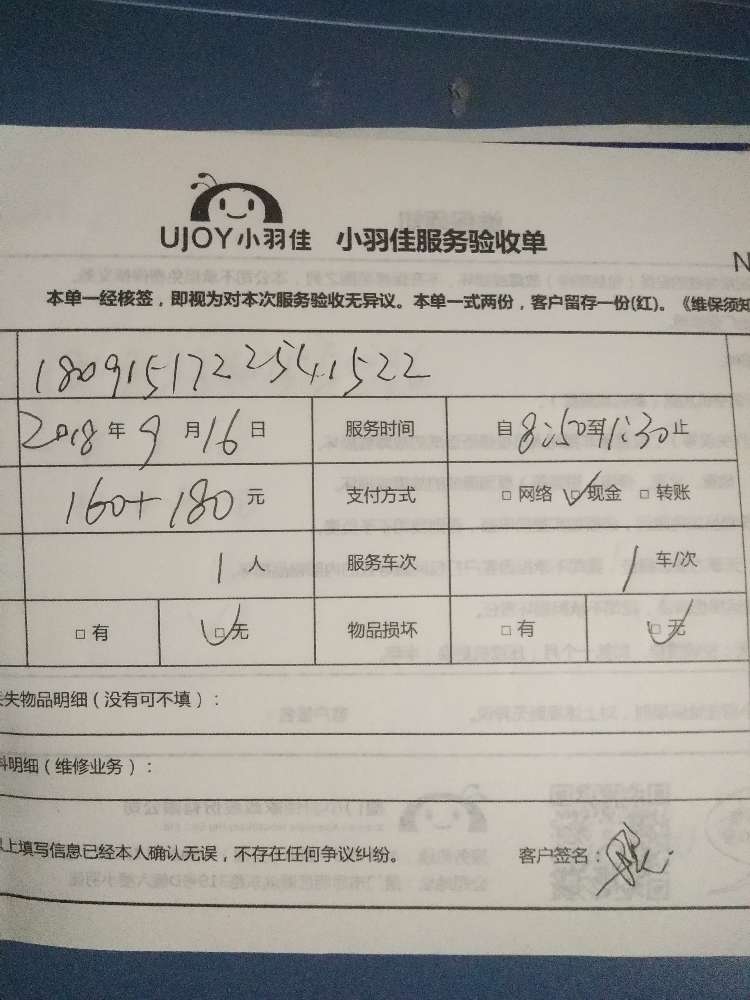 UJOY小羽佳 小羽佳服务验收单
N
本单一经核签，即视为对本次服务验收无异议。本单一式两份，客户留存一份(红)。《维保须知
1809151722541522
2018年9月16日 服务时间 自8:50至11:30止
160+180元 支付方式 □网络 ☑现金 □转账
1人 服务车次 1车/次
□有 ☑无 物品损坏 □有 ☑无
失物品明细（没有可不填）：
料明细（维修业务）：
以上填写信息已经本人确认无误，不存在任何争议纠纷。 客户签名：